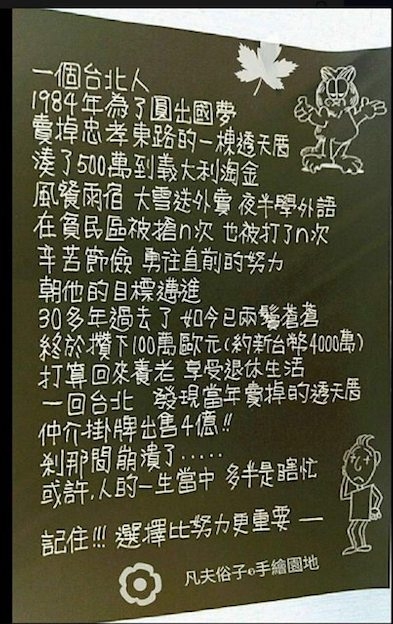 一個台北人
1984年為了圓出國夢
賣掉忠孝東路的一棟透天厝
湊了500萬到義大利淘金
風餐雨宿 大雪送外賣 夜半學外語
在貧民區被搶n次 也被打了n次
辛苦節儉 勇往直前的努力
朝他的目標邁進
30多年過去了 如今已兩鬢蒼蒼
終於攢下100萬歐元(約新台幣4000萬)
打算回來養老 享受退休生活
一回台北 發現當年賣掉的透天厝
仲介掛牌出售4億!!
剎那間崩潰了.....
或許,人的一生當中 多半是瞎忙
記住!!! 選擇比努力更重要 —
凡夫俗子の手繪園地